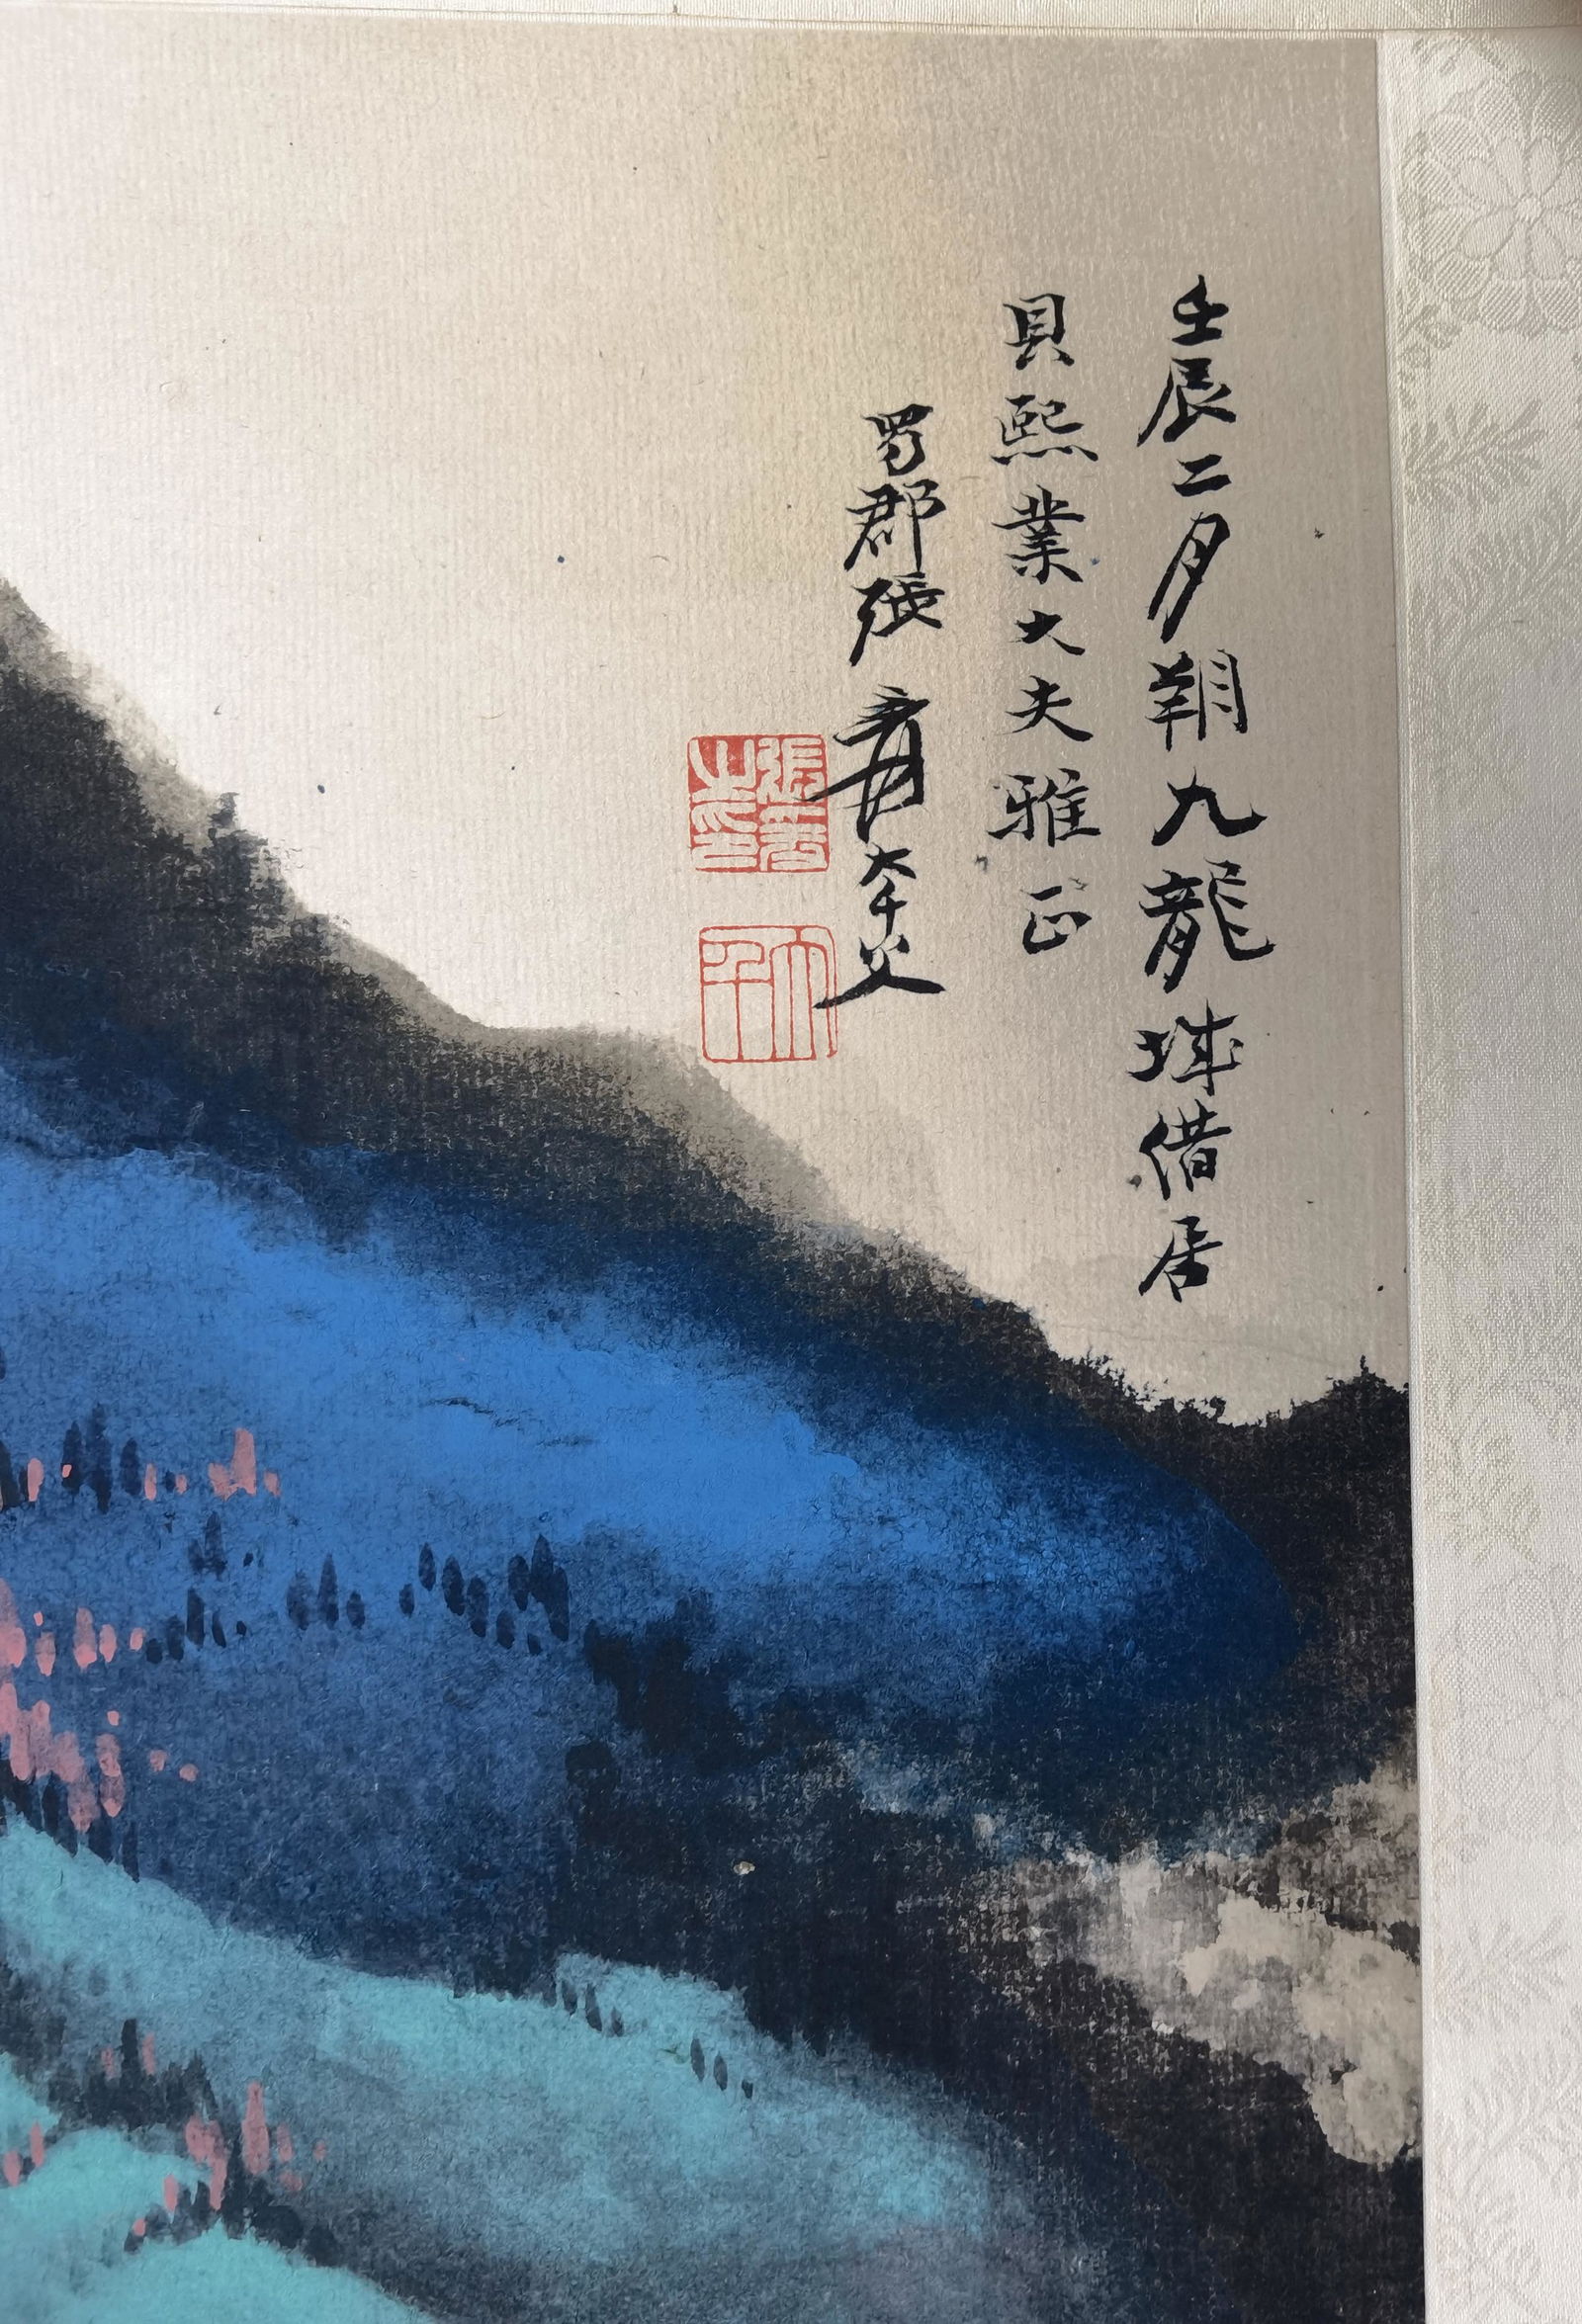 壬辰二月朔九龍城借居
貝熙業大夫雅正
蜀郡張爰大千父
張爰之印
大千